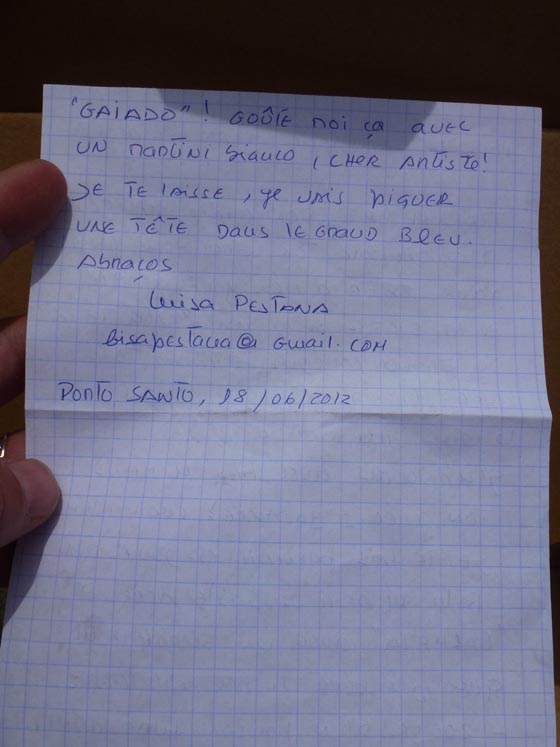 "GAIADO"! GOÛTE MOI ça avec
UN MARTINI biauco, CHER ARTiste!
JE TE LAISSE, je vais PIQUER
UNE TÊTE DANS LE GRAND BLEU.
Abraços
Luisa PESTANA
bisapestana@gmail.com
PORTO SANTO, 18/06/2012